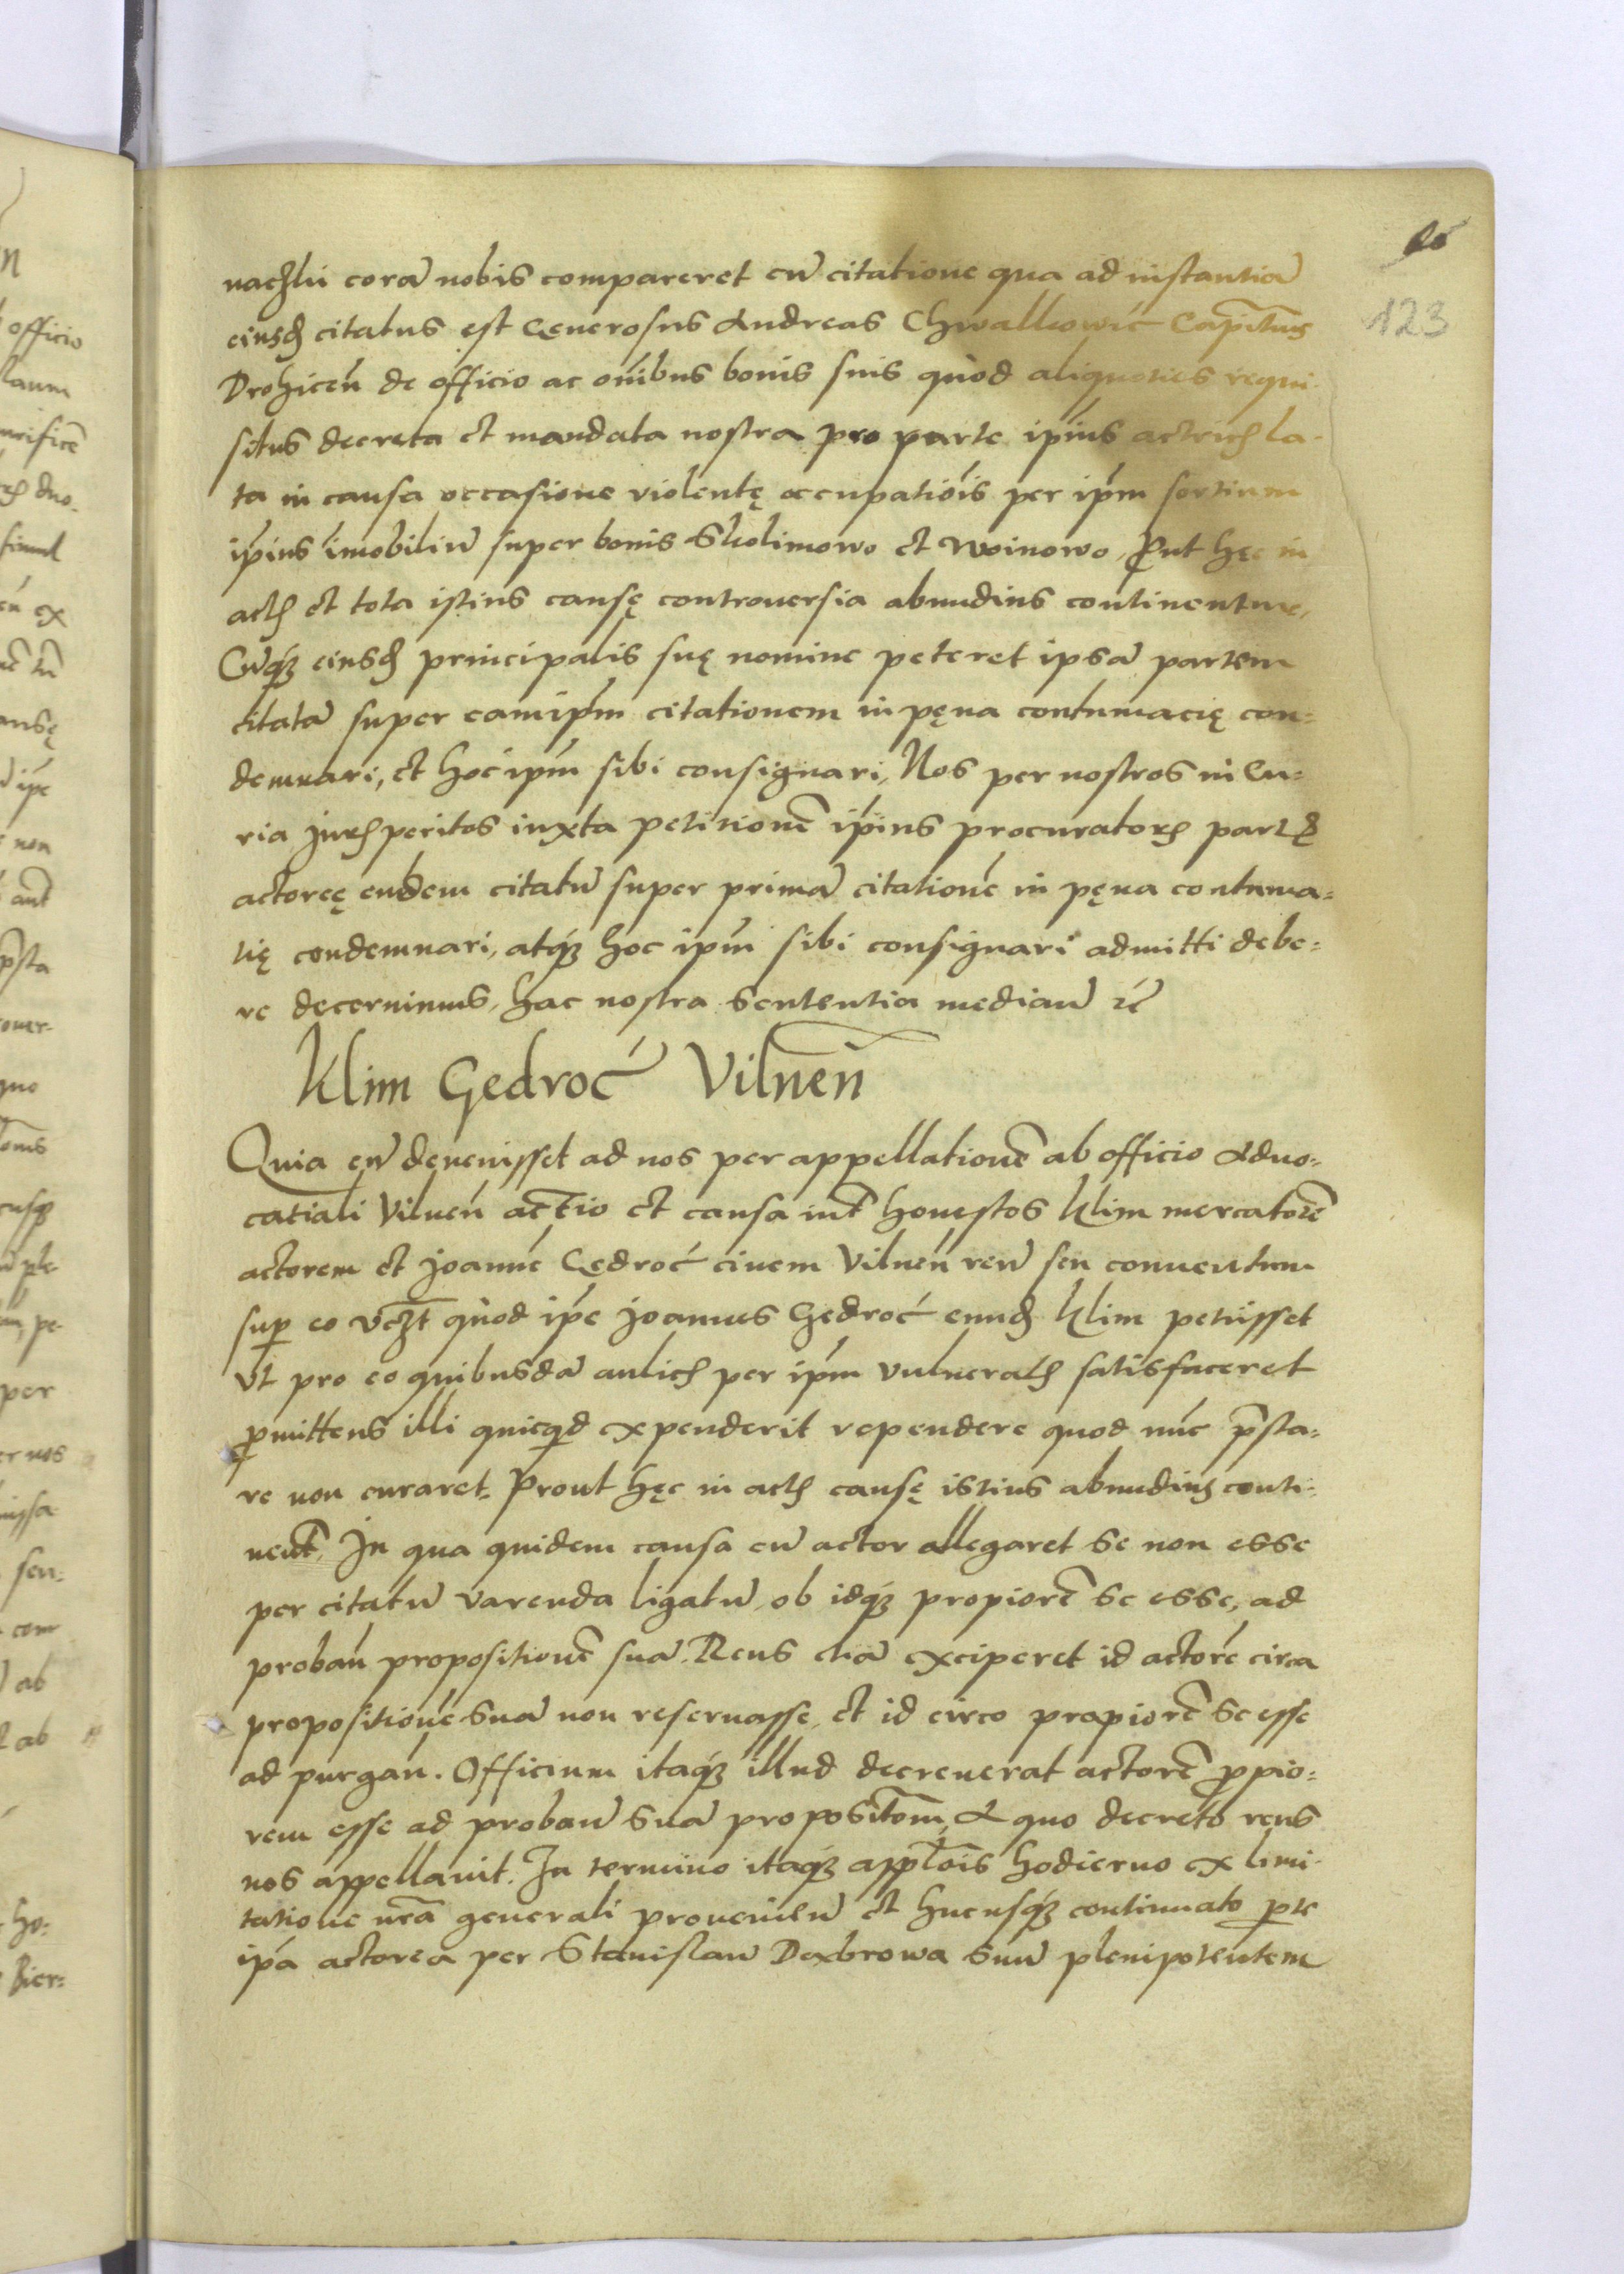 60
123
nachlii corā nobis compareret cū citatione qua ad instantiā
eiusd citatus est Generosus Andreas Chwalkowić Capitnus
Drohiceń de officio ac oīnibus bonis suis quòd aliquoties requi-
situs decreta et mandata nostra pro parte ipīus actricis la-
ta in causa occasione violentę occupatiōis per ipm sortium
ipīus imobiliū super bonis Skolimowo et Woinowo, Put hęc in
actis et tota istius causę controuersia abundius continentur,
Cūq; eiusd principalis suę nomine peteret ipsā partem
citatā super eamipm citationem in pęna contumacię con=
demnari, et hoc ipm sibi consignari, Nos per nostros in Cu=
ria Jurisperitos iuxta petitionē ipīus procuratoris partis
actoreę eundem citatū super primā citationē in pęna contuma=
cię condemnari, atq; hoc ipm sibi consignari admitti debe=
re decernimus, hac nostra sententia median̄ rē
Klim Gedroć Vilnen̄
Quia cū deuenisset ad nos per appellationē ab officio Aduo=
catiali Vilneń actio et causa int̄ honestos Klim mercatorē
actorem et Joannē Gedroć ciuem Vilneń reū seu conuentum
sup eo vczt quòd ipe Joannes Gedroć eund Klim petiisset
vt pro eo quibusdā aulicis per ipm vulneratis satisfaceret
pmittens illi quicqd expenderit rependere quod nūc p̄sta=
re non curaret. Prout hęc in actis causę istius abundius conti-
nent̄. In qua quidem causa cū actor allegaret se non esse
per citatū varenda ligatū, ob idq; propiorē se esse, ad
probań propositionē suā. Reus etiā exciperet id actorē circa
propositionē suā non reseruasse, et id circo propiorē se esse
ad purgan. Officium itaq; illud decreuerat actorē ppio=
rem esse ad proban̄ suā propositōm, A quo decreto reus
nos appellauit. In termino itaq; applōis hodierno ex limi-
tatione nr̄a generali prouenien̄ et hucusq; continuato pte
ipā actorea per Stanislaū Dąbrowa suū plenipotentem